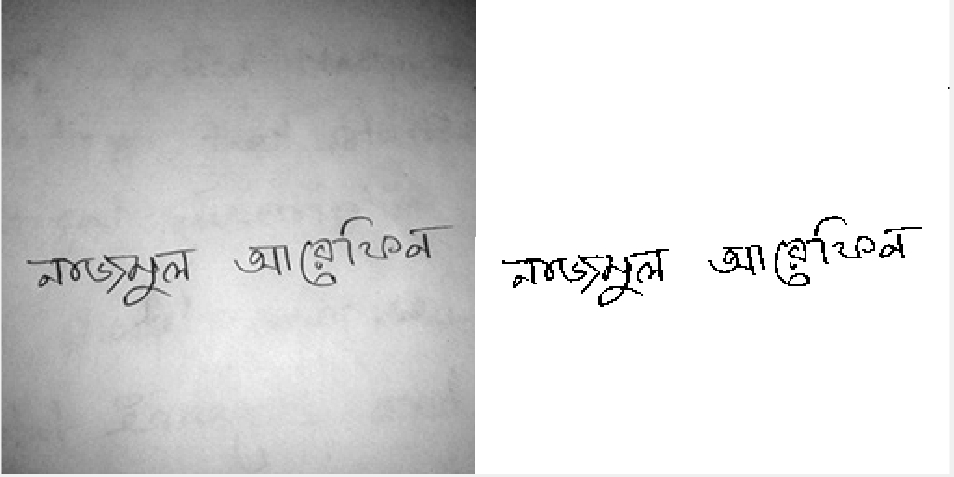 নাজমুল আরেফিন নাজমুল আরেফিন